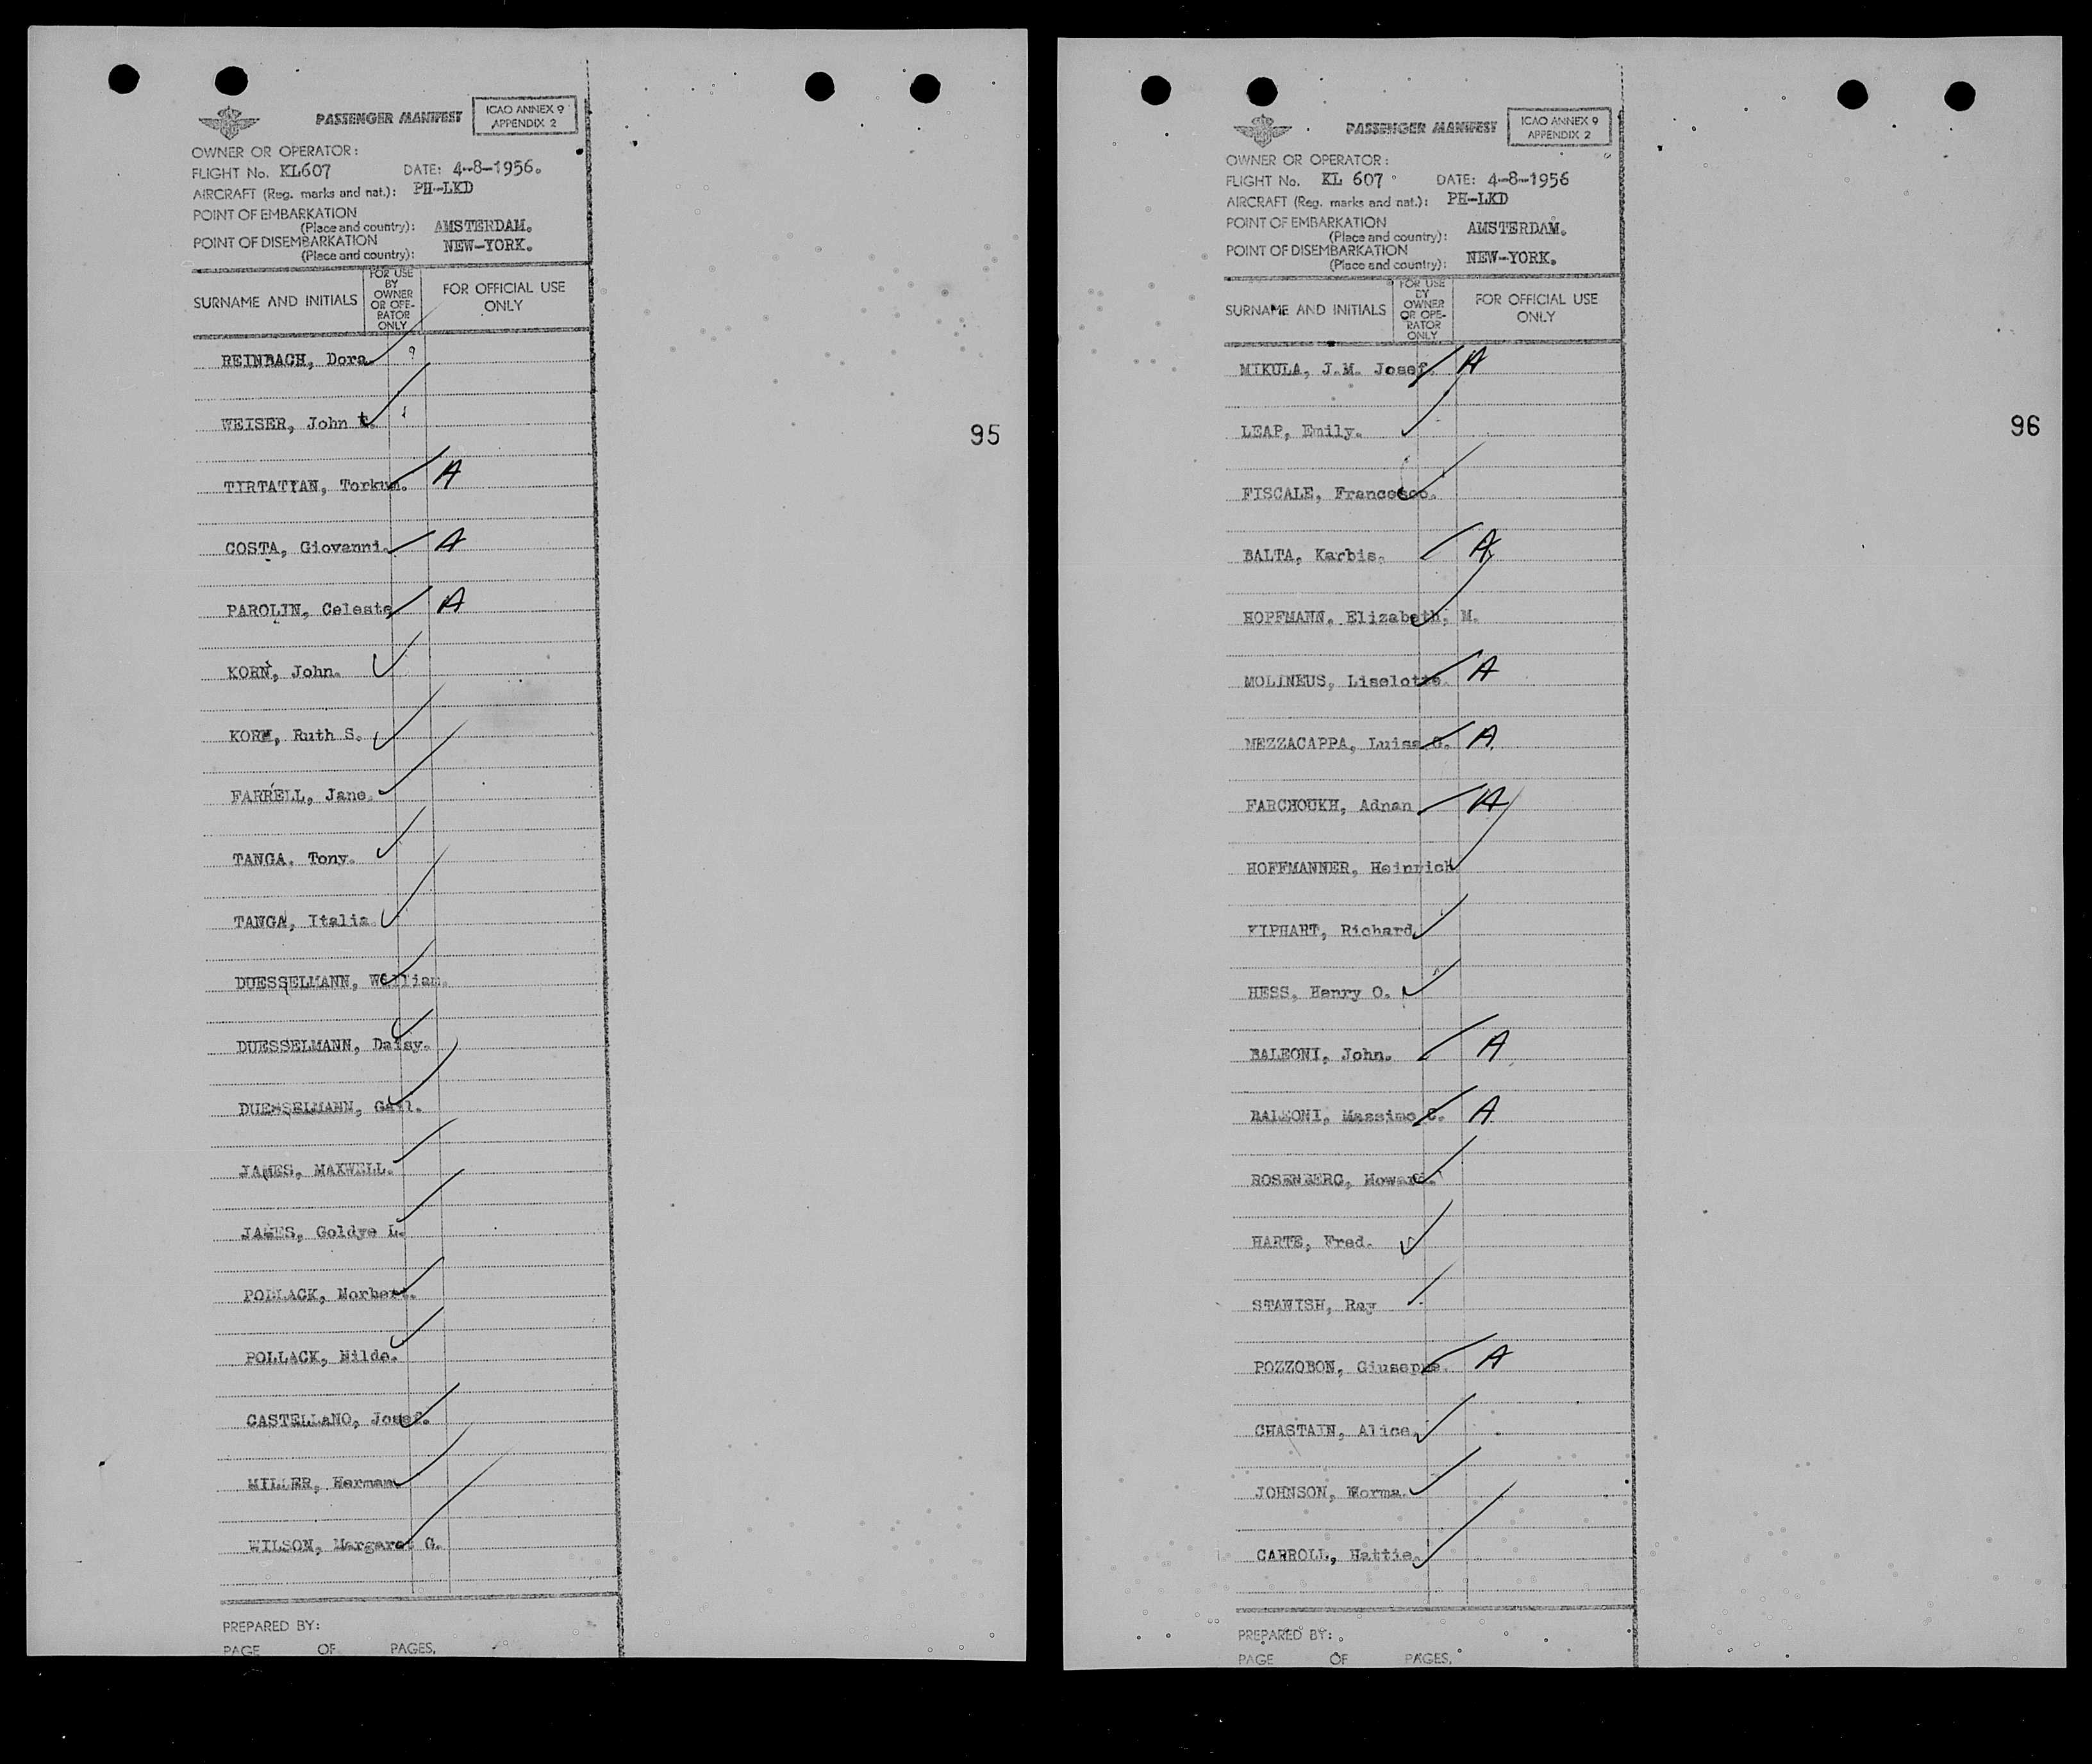 PASSENGER MANIFEST
ICAO ANNEX 9
APPENDIX 2
OWNER OR OPERATOR:
FLIGHT No. KL607 DATE: 4-8-1956.
AIRCRAFT (Reg. marks and nat.): PH-LKD
POINT OF EMBARKATION
(Place and country): AMSTERDAM.
POINT OF DISEMBARKATION
(Place and country): NEW-YORK.
SURNAME AND INITIALS
FOR USE
BY
OWNER
OR OPE-
RATOR
ONLY
FOR OFFICIAL USE
ONLY
REINBACH, Dora.
WEISER, John t.
95
TIRTATIAN, Torkum. A
COSTA, Giovanni. A
PAROLIN, Celeste A
KORN, John.
KORN, Ruth S.
FARRELL, Jane.
TANGA. Tony.
TANGA, Italia.
DUESSELMANN, William.
DUESSELMANN, Daisy.
DUESSELMANN, Gail.
JAMES, MAXWELL.
JAMES, Goldye L.
POLLACK, Norbert.
POLLACK, Hilde.
CASTELLANO, Josef.
MILLER, Herman
WILSON, Margaret G.
PREPARED BY:
PAGE OF PAGES.
PASSENGER MANIFEST
ICAO ANNEX 9
APPENDIX 2
OWNER OR OPERATOR:
FLIGHT No. KL 607 DATE: 4-8-1956
AIRCRAFT (Reg. marks and nat.): PH-LKD
POINT OF EMBARKATION
(Place and country): AMSTERDAM.
POINT OF DISEMBARKATION
(Place and country): NEW-YORK.
SURNAME AND INITIALS
FOR USE
BY
OWNER
OR OPE-
RATOR
ONLY
FOR OFFICIAL USE
ONLY
MIKULA, J.M. Josef. A
LEAP, Emily.
96
FISCALE, Francesco.
BALTA, Karbis. A
HOPFMANN. Elizabeth, M.
MOLINEUS, Liselotte. A
MEZZACAPPA, Luisa G. A
FARCHOUKH, Adnan A
HOFFMANNER, Heinrich
KIPHART, Richard.
HESS, Henry O.
BALEONI, John. A
BALEONI, Massimo C. A
ROSENBERG, Howard.
HARTE, Fred.
STANISH, Ray
POZZOBON, Giuseppe. A
CHASTAIN, Alice.
JOHNSON, Norma.
CARROLL, Hattie.
PREPARED BY:
PAGE OF PAGES.